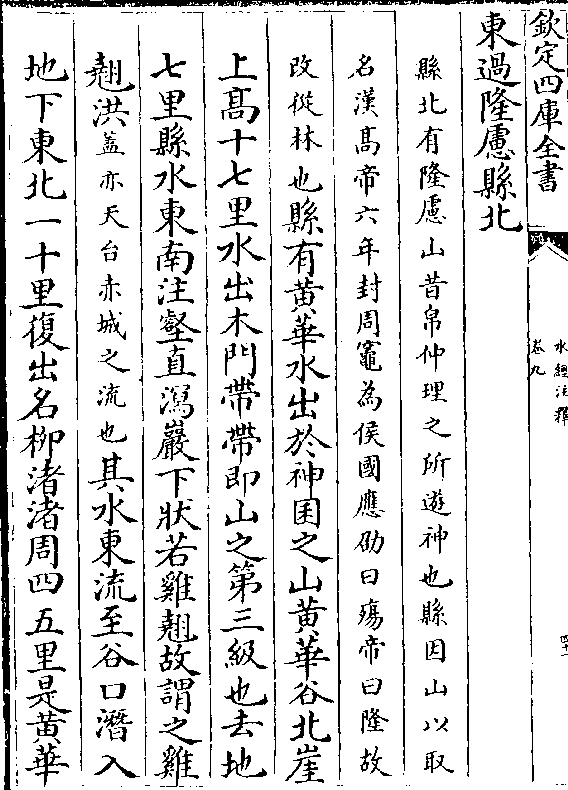 欽定四庫全書
水經注釋
卷九
東過隆慮縣北
縣北有隆慮山昔帛仲理之所遊神也縣因山以取
名漢高帝六年封周竈為侯國應劭曰殤帝曰隆故
改從林也縣有黄華水出於神囷之山黄華谷北崖
上髙十七里水出木門帶帶即山之第三級也去地
七里縣水東南注壑直瀉巖下狀若雞翹故謂之雞
翹洪蓋亦天台赤城之流也其水東流至谷口潛入
地下東北一十里復出名柳渚渚周四五里是黄華